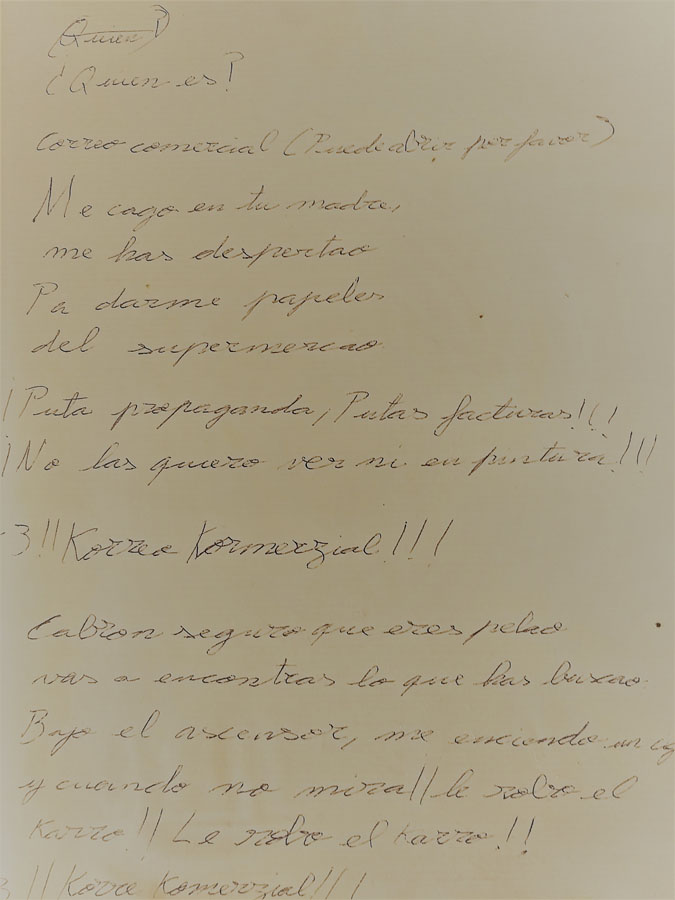 (Quien?)
¿Quien es?
Correo comercial (Puede abrir por favor)
Me cago en tu madre,
me has despertao
Pa darme papeles
del supermercao
¡Puta propaganda, Putas facturas!!!
¡No las quiero ver ni en pintura!!!
3!! Korreo Kormerzial!!!
Cabron seguro que eres pelao
vas a encontras lo que has buscao
Bajo el ascensor, me enciendo un
y cuando no mira!! le robo el
Karro!! Le robo el Karro!!
3!! Korre Komerzial!!!